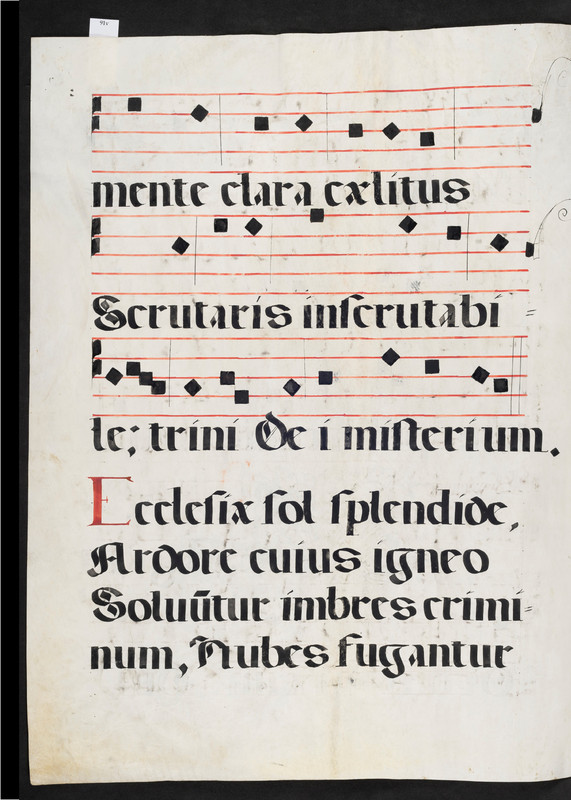 91v
mente clara cælitus
Scrutaris inſcrutabi=
le; trini De i miſterium.
Eccleſiæ ſol ſplendide,
Ardore cuius igneo
Soluũtur imbres crimi=
num, Nubes fugantur